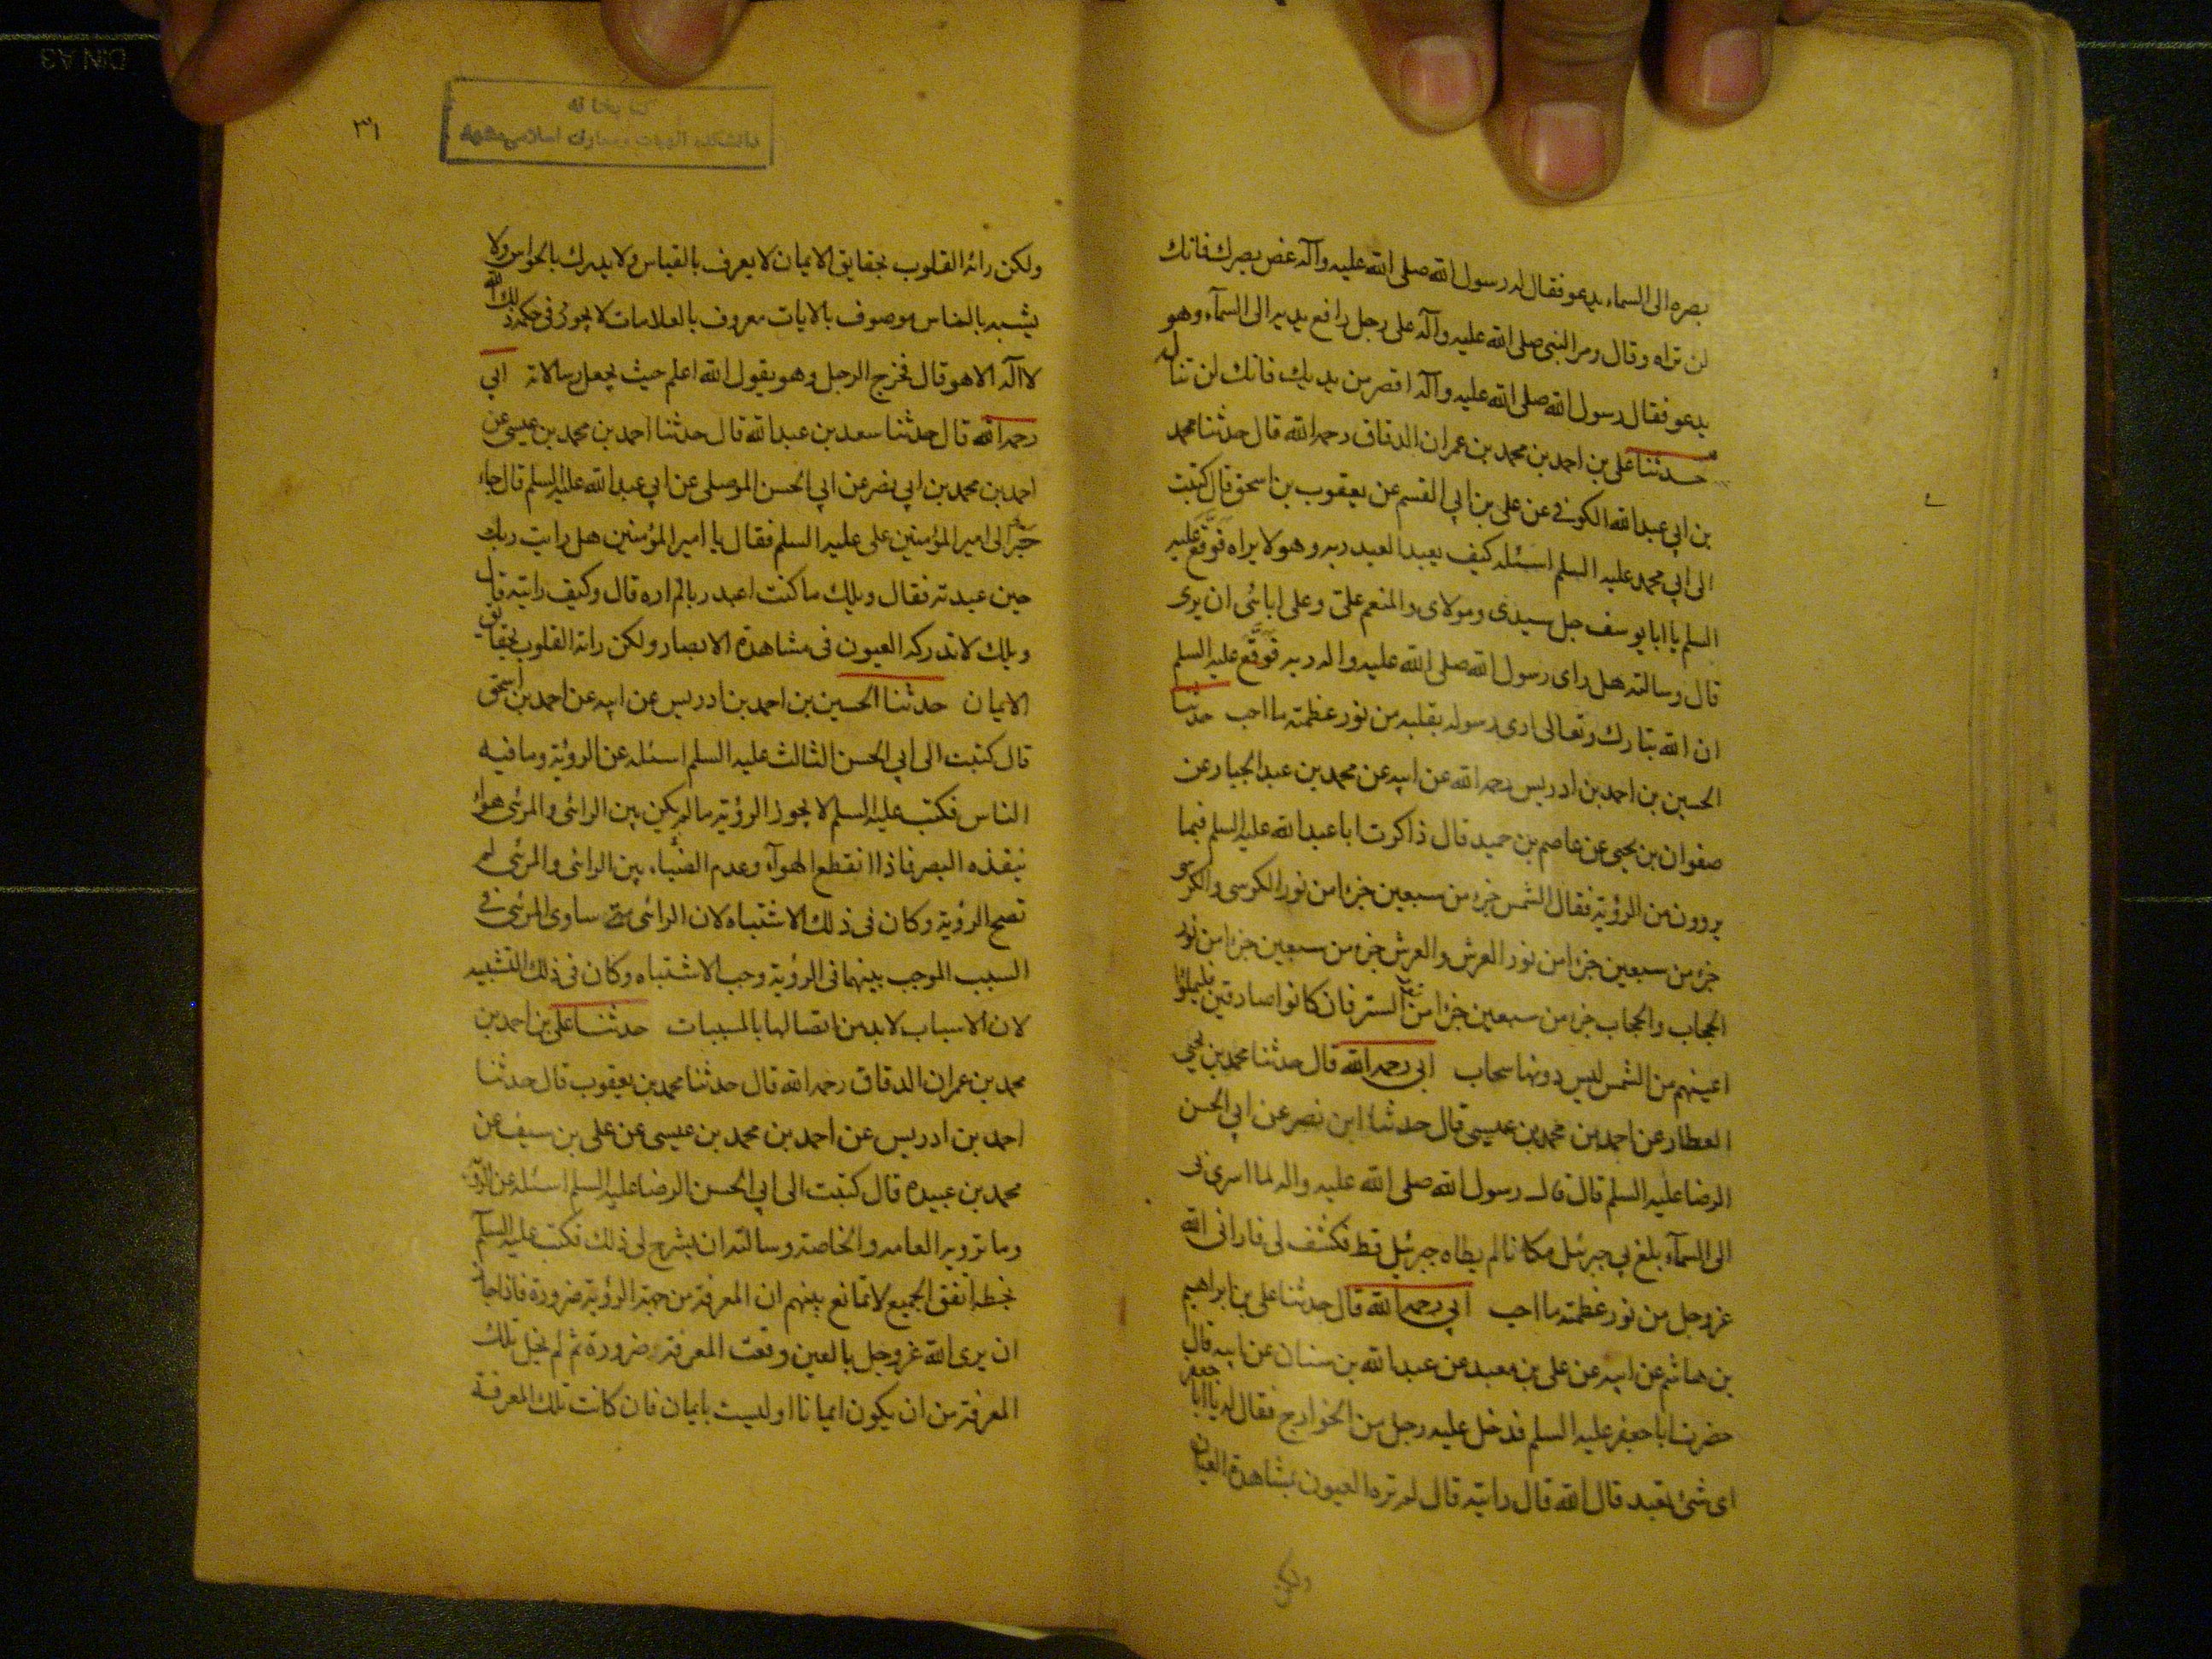 بصره الى السماء يدعو فقال له رسول الله صلى الله عليه وآله غض بصرك فانك
لن تراه وقال ومر النبي صلى الله عليه وآله على رجل رافع يديه الى السمآء وهو
يدعو فقال رسول الله صلى الله عليه وآله اقصر من يديك فانك لن تناله
حدثنا علي بن احمد بن محمد بن عمران الدقاق رحمه الله قال حدثنا محمد
بن ابي عبد الله الكوفي عن علي بن ابي القسم عن يعقوب بن اسحق قال كتبت
الى ابي محمد عليه السلم اسئله كيف يعبد العبد ربه وهو لا يراه فوقع عليه
السلم يا ابا يوسف جل سيدى ومولاى والمنعم على وعلى ابائى ان يرى
قال وسالته هل راى رسول الله صلى الله عليه واله ربه فوقع عليه السلم
ان الله تبارك وتعالى ارى رسوله بقلبه من نور عظمته ما احب حدثنا
الحسين بن احمد بن ادريس رحمه الله عن ابيه عن محمد بن عبد الجبار عن
صفوان بن يحيى عن عاصم بن حميد قال ذاكرت ابا عبد الله عليه السلم فيما
يروون من الرؤية فقال الشمس جزء من سبعين جزءا من نور الكرسى والكرسى
جزء من سبعين جزءا من نور العرش والعرش جزء من سبعين جزءا من نور
الحجاب والحجاب جزء من سبعين جزءا من نور الستر فان كانوا صادقين فليملؤا
اعينهم من الشمس ليس دونها سحاب ابى رحمه الله قال حدثنا محمد بن يحيى
العطار عن احمد بن محمد بن عيسى قال حدثنا ابن نصر عن ابي الحسن
الرضا عليه السلم قال قال رسول الله صلى الله عليه واله لما اسرى بى
الى السمآء بلغ بي جبرئيل مكانا لم يطاه جبرئيل قط فكشف لى فارانى الله
عز وجل من نور عظمته ما احب ابي رحمه الله قال حدثنا على بن ابراهيم
بن هاشم عن ابيه عن على بن معبد عن عبد الله بن سنان عن ابيه قال
حضرت ابا جعفر عليه السلم فدخل عليه رجل من الخوارج فقال له يا ابا جعفر
اى شئ تعبد قال الله قال رايته قال لم تره العيون بمشاهدة العيان
ولكن
٣١
كتابخانه
دانشكده الهيات ومعارف اسلامى مشهد
ولكن راته القلوب بحقايق الايمان لا يعرف بالقياس ولا يدرك بالحواس ولا
يشبه بالناس موصوف بالايات معروف بالعلامات لا يجوز فى حكمه ذلك الله
لا آله الا هو قال فخرج الرجل وهو يقول الله اعلم حيث يجعل رسالاته ابي
رحمه الله قال حدثنا سعد بن عبد الله قال حدثنا احمد بن محمد بن عيسى عن
احمد بن محمد بن ابي نصر عن ابي الحسن الموصلى عن ابي عبد الله عليه السلم قال جاء
حبر الى امير المؤمنين على عليه السلم فقال يا امير المؤمنين هل رايت ربك
حين عبدته فقال ويلك ما كنت اعبد ربا لم اره قال وكيف رايته قال
ويلك لا تدركه العيون فى مشاهدة الابصار ولكن راته القلوب بحقايق
الايمان حدثنا الحسين بن احمد بن ادريس عن ابيه عن احمد بن اسحق
قال كتبت الى ابي الحسن الثالث عليه السلم اسئله عن الرؤية وما فيه
الناس فكتب عليه السلم لا يجوز الرؤية ما لم يكن بين الرائى والمرئى هواء
ينفذه البصر فاذا انقطع الهوآء وعدم الضياء بين الرائى والمرئى لم
تصح الرؤية وكان فى ذلك الاشتباه لان الرائى متى ساوى المرئى في
السبب الموجب بينهما فى الرؤية وجب الاشتباه وكان فى ذلك التشبيه
لان الاسباب لا بد من اتصالها بالمسببات حدثنا على بن احمد بن
محمد بن عمران الدقاق رحمه الله قال حدثنا محمد بن يعقوب قال حدثنا
احمد بن ادريس عن احمد بن محمد بن عيسى عن على بن سيف عن
محمد بن عبيده قال كتبت الى ابي الحسن الرضا عليه السلم اسئله عن الرؤية
وما ترويه العامه والخاصة وسالته ان يشرح لى ذلك فكتب عليه السلم
بخطه اتفق الجميع لا تمانع بينهم ان المعرفة من جهة الرؤية ضرورة فاذا جاز
ان يرى الله عز وجل بالعين وقعت المعرفة ضرورة ثم لم تخل تلك
المعرفة من ان يكون ايمانا او ليست بايمان فان كانت تلك المعرفة